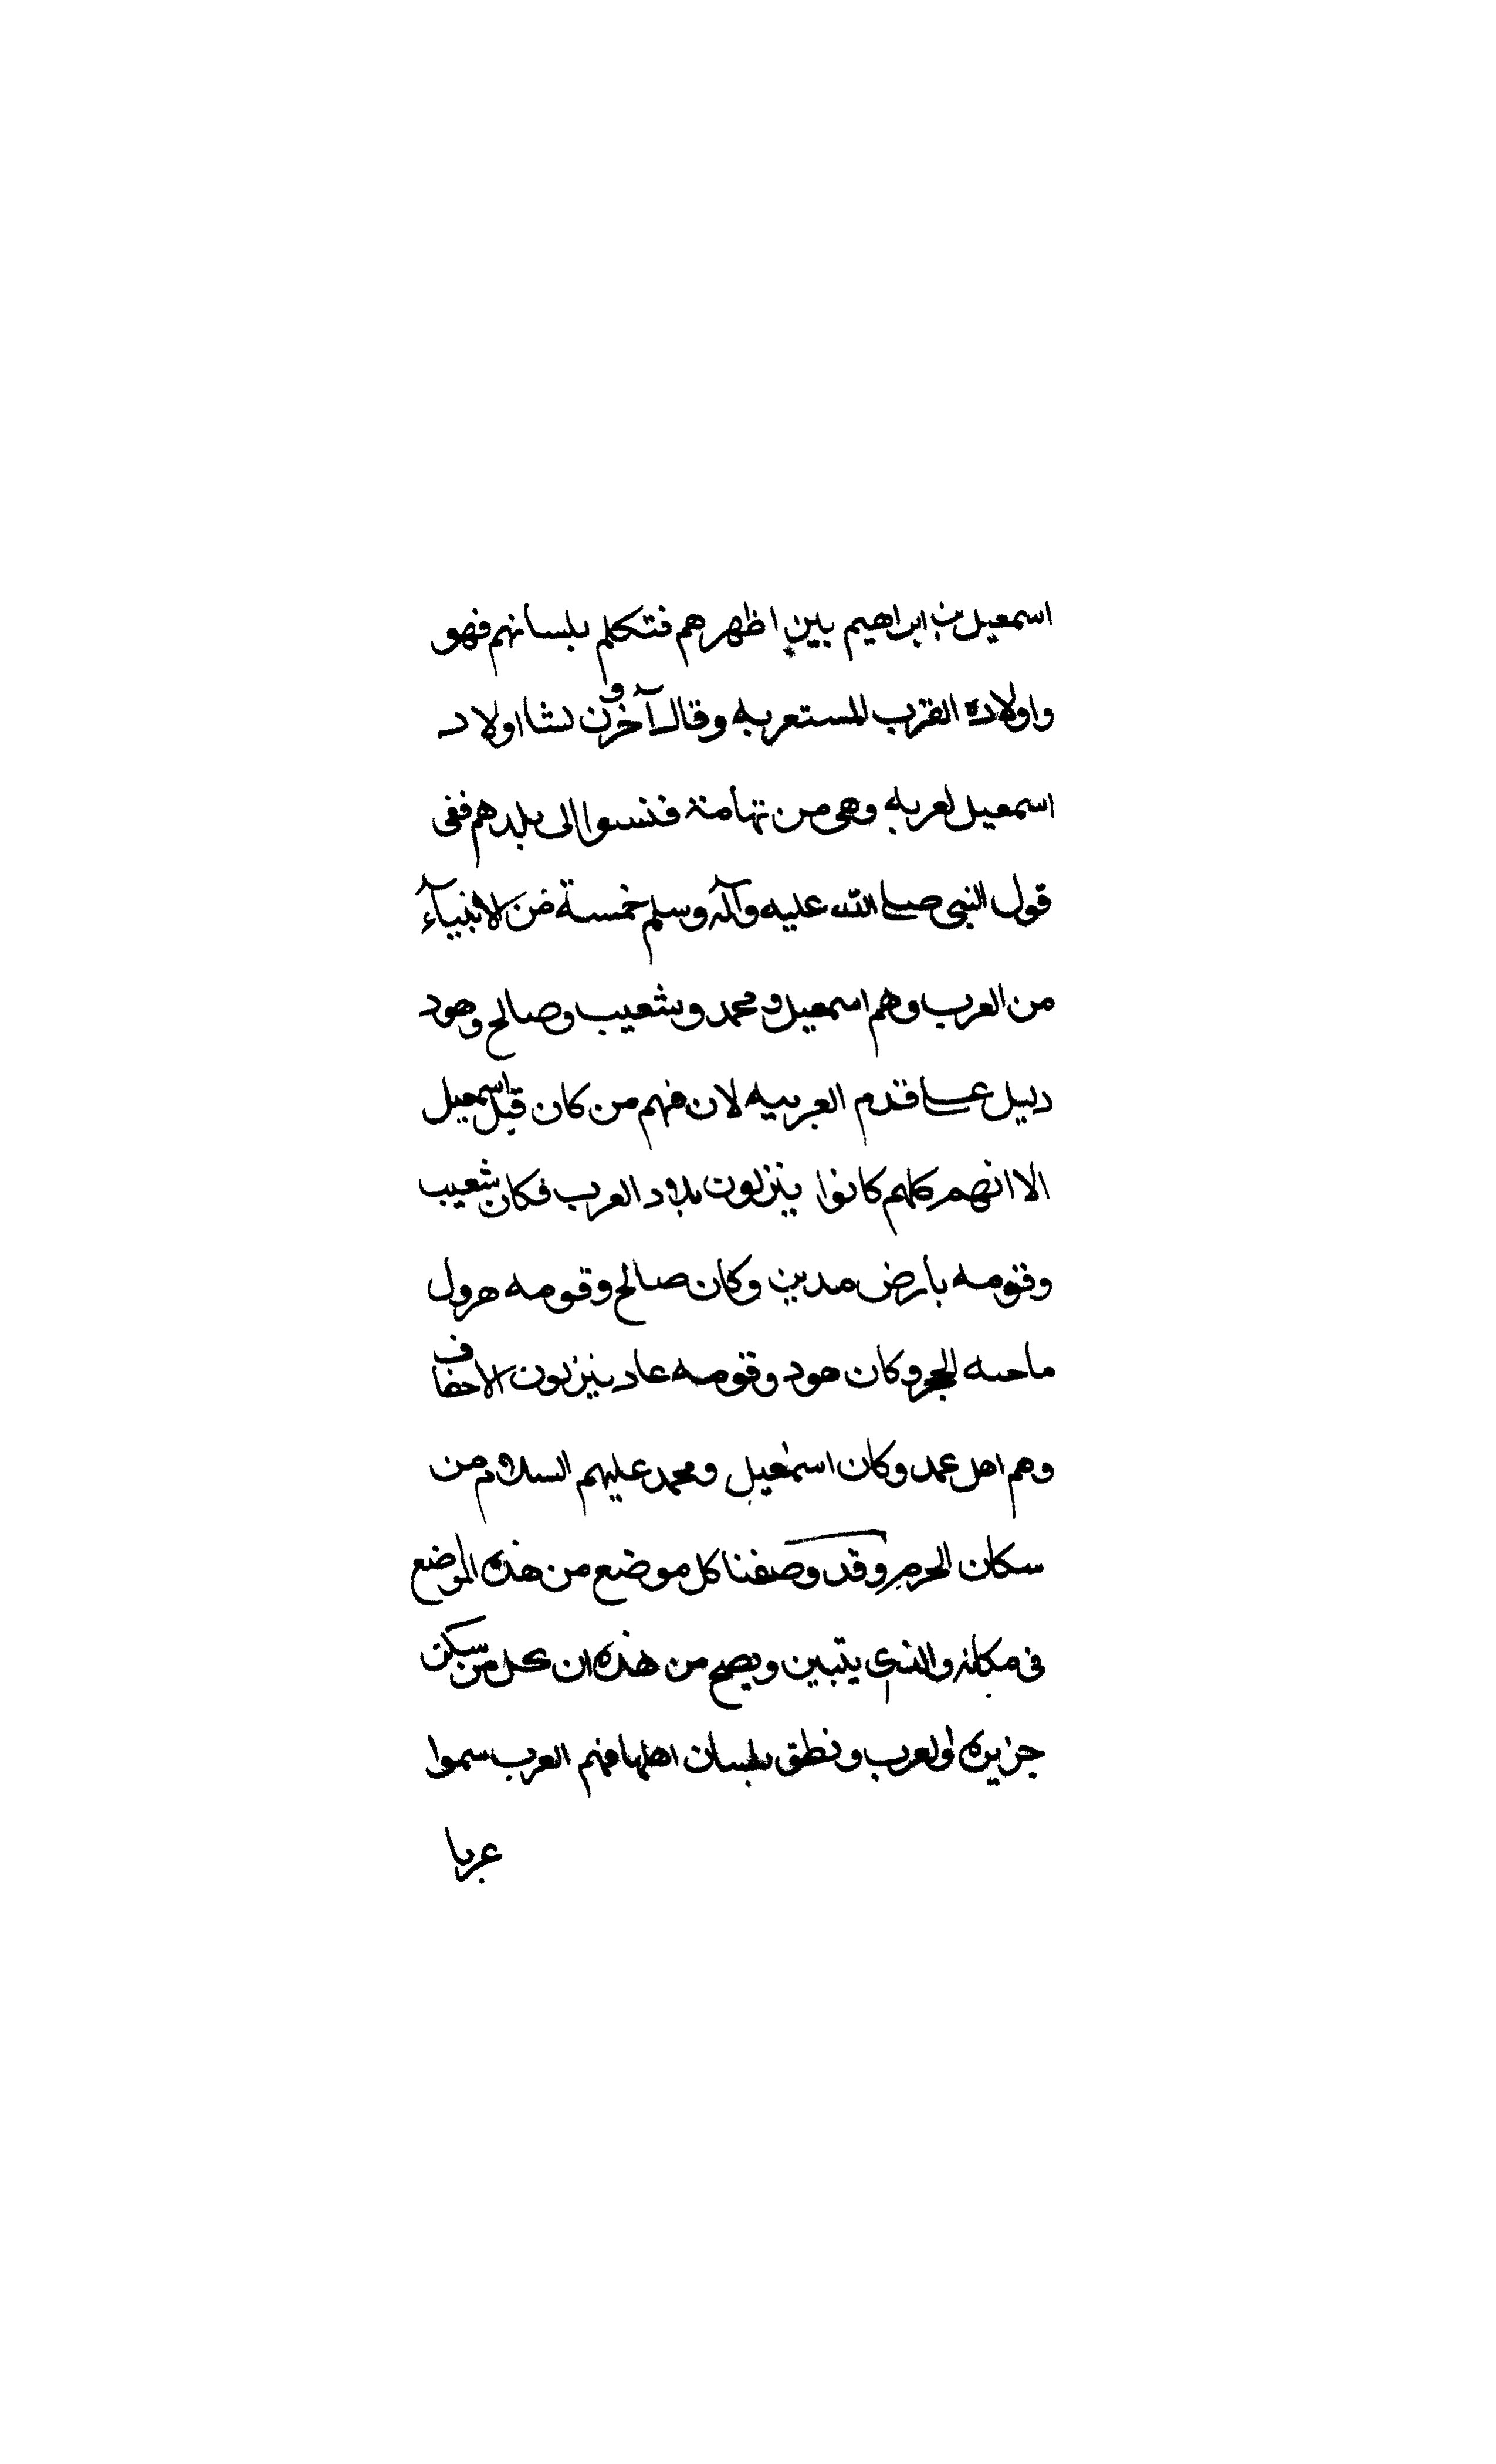 اسمعيل بن ابراهيم بين اظهرهم فتكلم بلسانهم فهو
واولاده العرب المستعربه وقال آخرون نشا اولاد
اسمعيل لعربه وهى من تهامة فنسبوا الى بلدهم ففى
قول النبى صلے الله عليه وآله وسلم خمسة من الانبيآء
من العرب وهم اسمعيل ومحمد وشعيب وصالح وهود
دليل علے قدم العربيه لان فيهم من كان قبل اسمعيل
الا انهم كلهم كانوا ينزلون بلاد العرب فكان شعيب
وقومه بارض مدين وكان صالح وقومه
الحجر وكان هود وقومه عاد ينزلون الاحقاف
وهم اهل عمد وكان اسمعيل ومحمد عليهم السلام من
سكان الحرم وقد وصفنا كل موضع من هذه الموضع
فى مكانه والذى يتبين ويصح من هذه ان كل من سكن
جزيرة العرب ونطق بلسان اهلها فهم العرب سموا
عربا